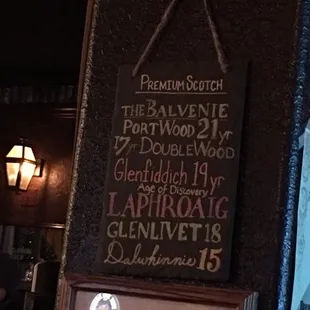 Premium Scotch
THE BALVENIE
PORTWOOD 21 yr
17yr DOUBLEWOOD
Glenfiddich 19 yr
Age of Discovery
LAPHROAIG
GLENLIVET 18
Dalwhinnie 15